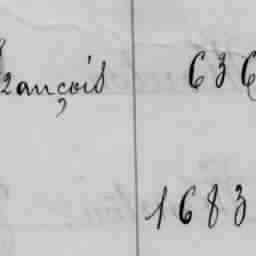 François 636
1683